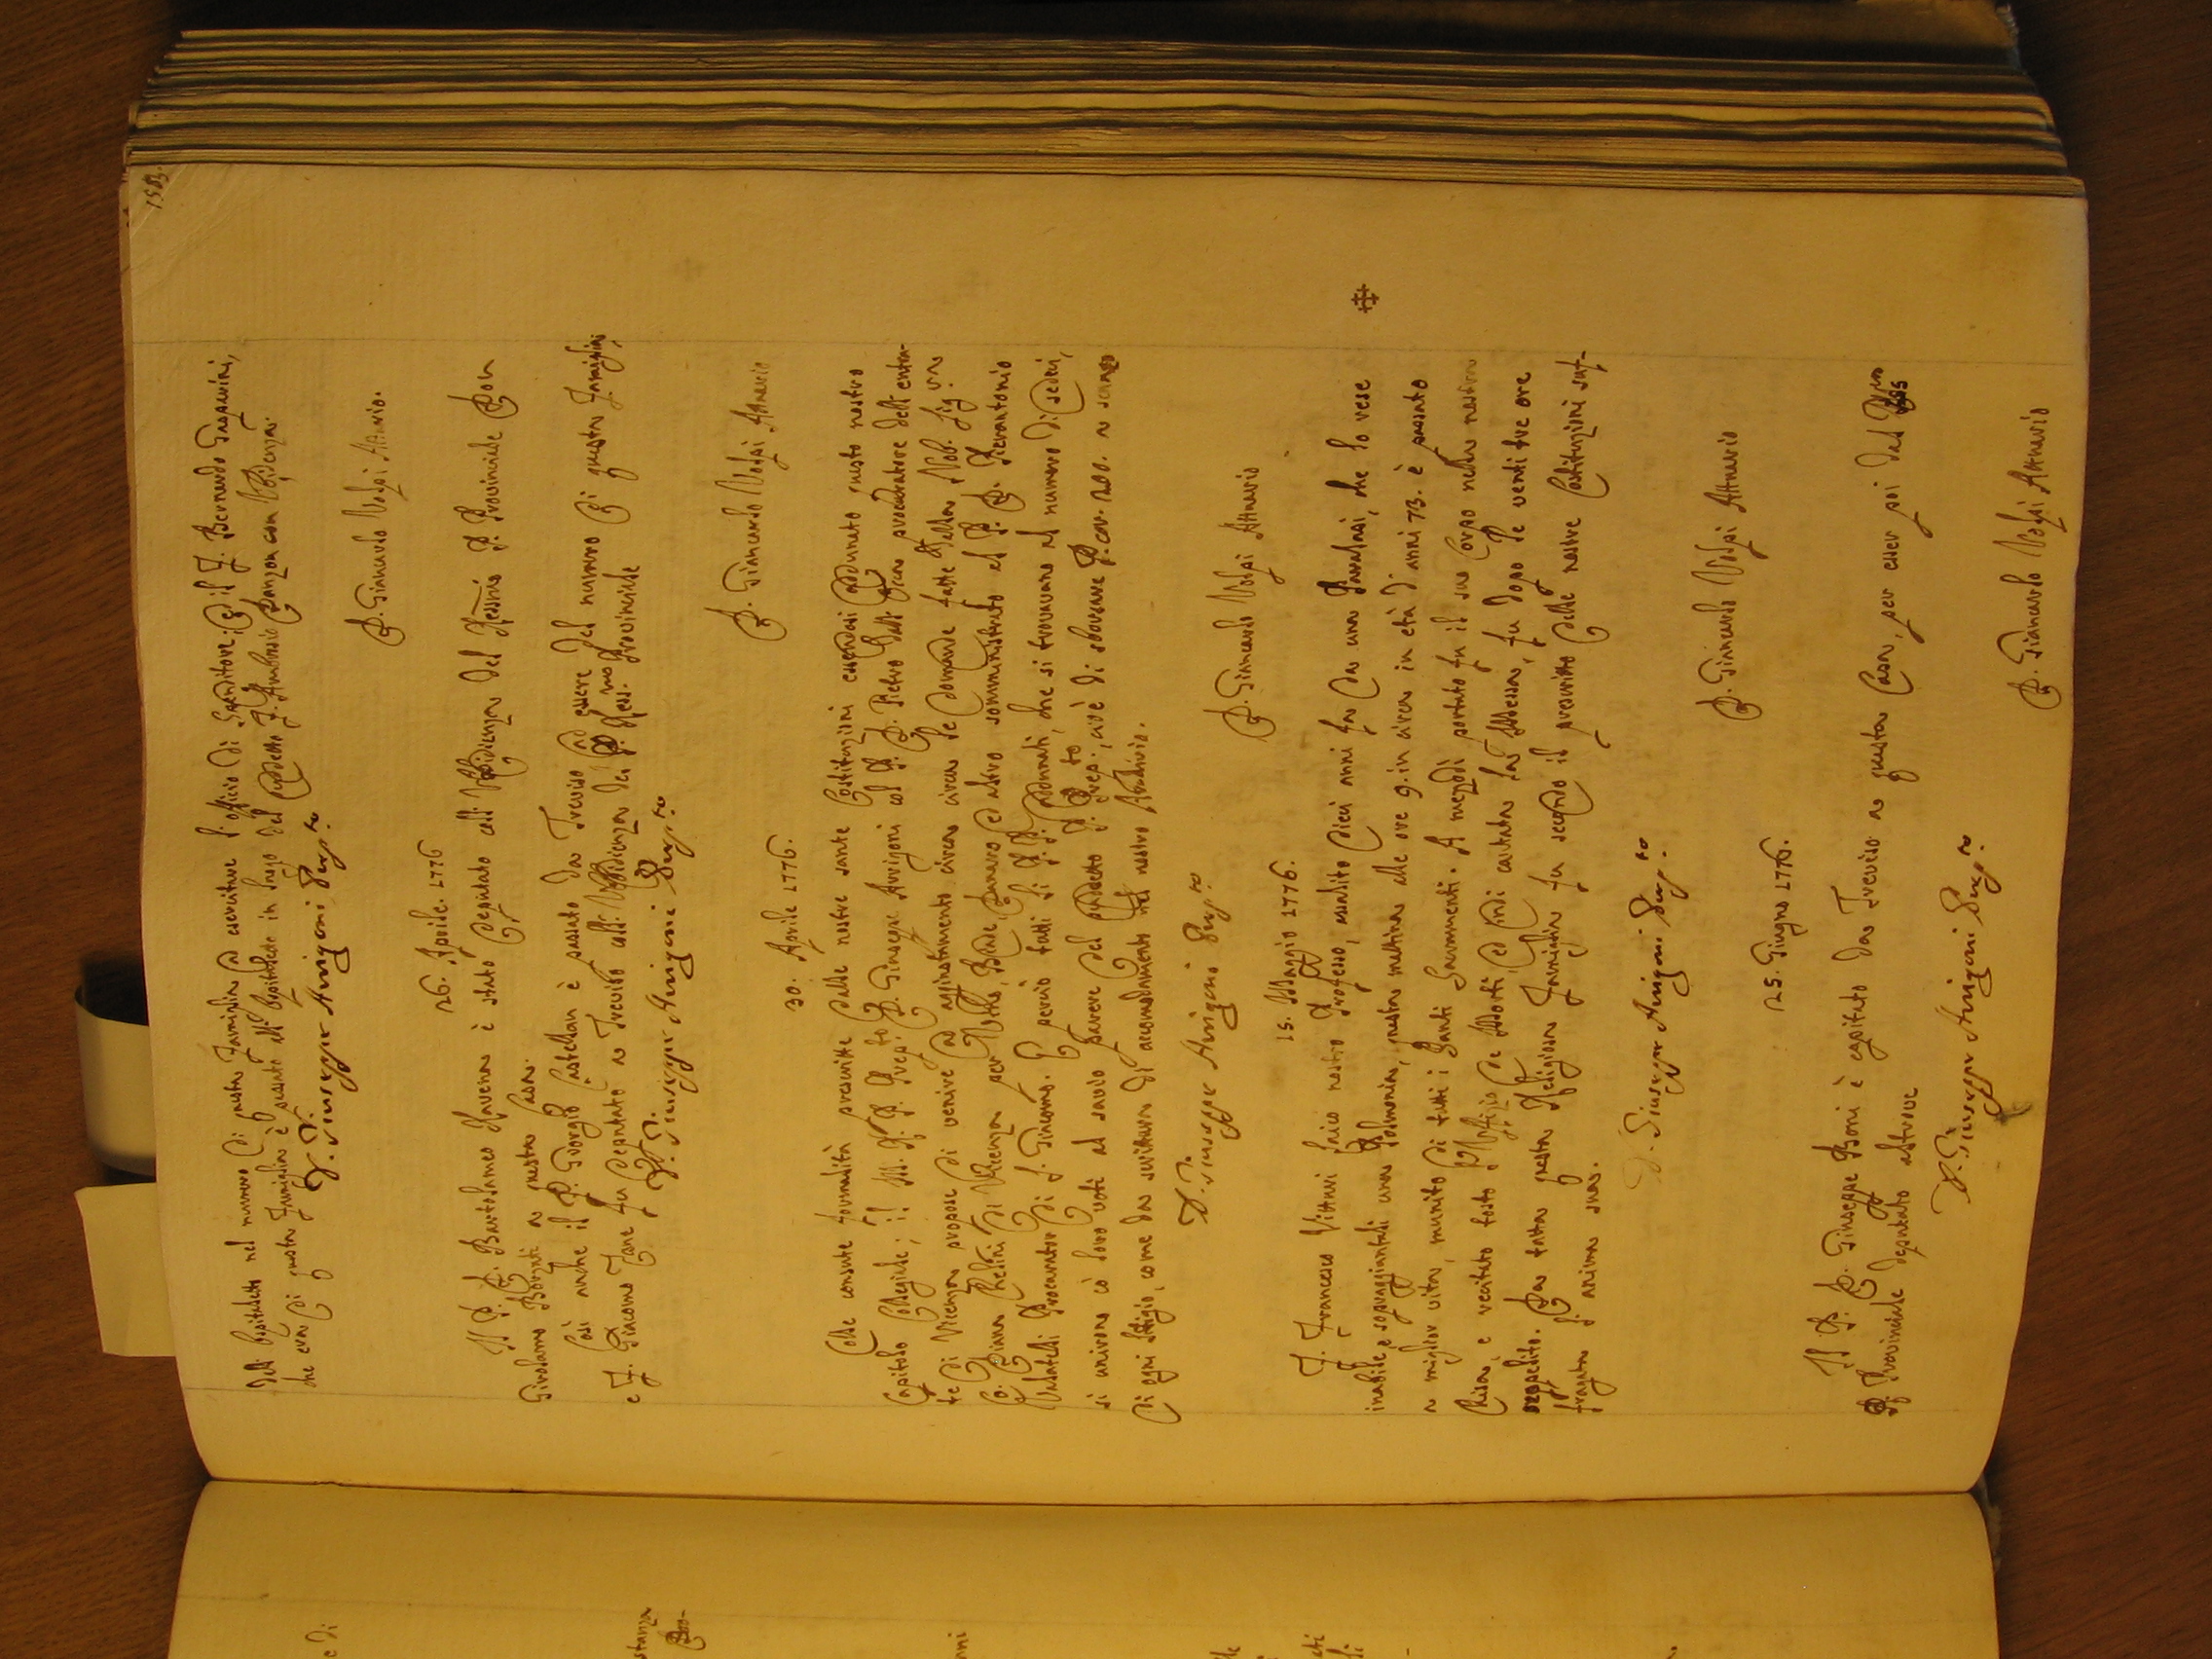 153.
dell' Ospitaletto nel numero di questa Famiglia ad esercitare l'officio di Spenditore; ed il F. Bernardo Gasparini,
che era di questa Famiglia è passato all' Ospitaletto in luogo del suddetto F. Ambrosio Panzon con Ubidienza.
D. Giuseppe Arrigoni Prep.to
D. Giancarlo Volpi Attuario.
26. Aprile. 1776
Il P. D. Bartolomeo Ravena è stato deputato coll' Ubbidienza del Ressmo P. Provinciale Don
Girolamo Bonti a questa Casa.
Così anche il P. Giorgio Castellan è passato da Treviso ad essere del numero di questa Famiglia,
e F. Giacomo Tare fu deputato a Treviso coll' Ubbidienza del P. Ress.mo Provinciale
D. Giuseppe Arrigoni Prep.to
D. Giancarlo Volpi Attuario
30. Aprile 1776.
Colle consuete formalità prescritte dalle nostre sante Costituzioni essendosi addunato questo nostro
Capitolo Collegiale; il M. R. P. Prep.to D. Giuseppe Arrigoni col P. D. Pietro procuratore dell' entra-
te di Vicenza propose di venire ad aggiustamento circa le domande fatte dalla Nob. Sig.ra
Co: Diana di Vicenza per ed altro somministrato al P. D. Pierantonio
Procurator di S. Giacomo. E perciò tutti li P. P. addunati, che si trovavano al numero di sedici,
si unirono co' loro voti al savio parere del suddetto P. Prep.to, cioè di sborsare cor. 200. a scanso
di ogni litigio, come da scrittura di accomodamento nel nostro Archivio.
D. Giuseppe Arrigoni Prep.to
D. Giancarlo Volpi Attuario
15. Maggio 1776.
F. Francesco Vitturi laico nostro Professo, assalito dieci anni fa da una Paralisi, che lo rese
inabile, e sopraggiuntali una Polmonia, questa mattina alle ore 9. in circa in età d' anni 73. è passato
a miglior vita, munito di tutti i Santi Sacramenti. A mezzodì portato fu il suo Corpo nella nostra
Chiesa, e recitato tosto l' Uffizio de' Morti, ed indi cantata la Messa, fu dopo le venti tre ore
seppelito. Da tutta questa Religiosa Famiglia fu secondo il prescritto delle nostre Costituzioni suf-
fragata l' anima sua.
D. Giuseppe Arrigoni Prep.to
D. Giancarlo Volpi Attuario
25. Giugno 1776.
Il P. D. Giuseppe Boni è capitato da Treviso a questa Casa, per esser poi dal Ress.mo
P. Provinciale deputato altrove
D. Giuseppe Arrigoni Prep.to
D. Giancarlo Volpi Attuario
e di
stanza